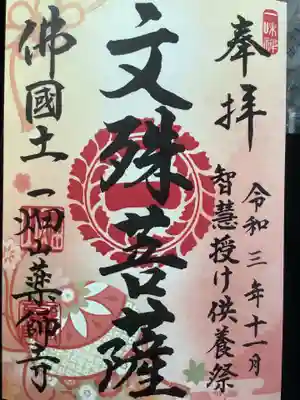 奉拝
令和三年十一月
智慧授け供養祭
文殊菩薩
佛國土一畑山薬師寺